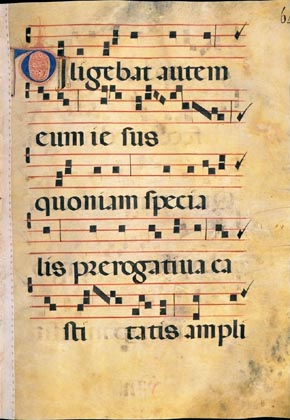 Diligebat autem
eum ie sus
quoniam specia
lis prerogatiua ca
sti tatis ampli